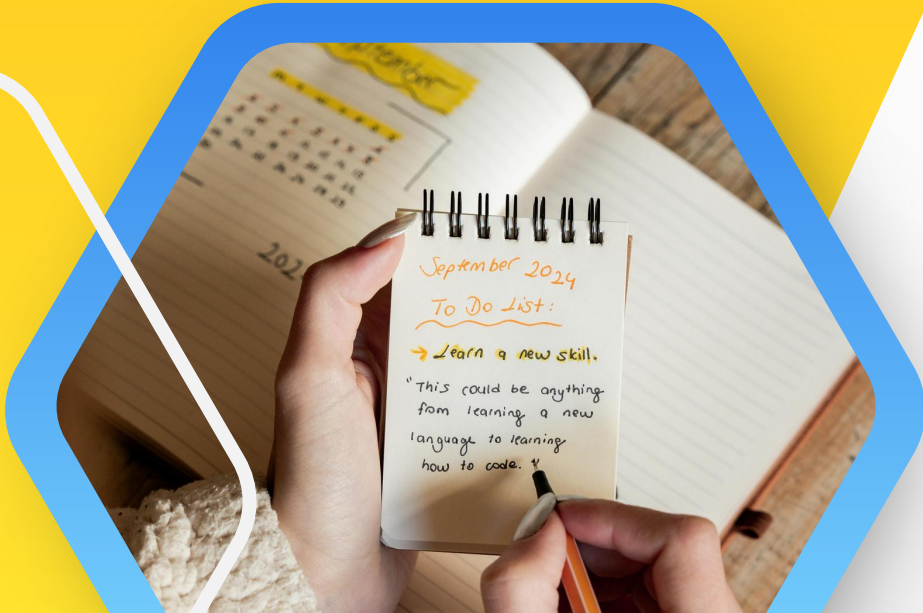 September
202
September 2024
To Do List:
→ Learn a new skill.
"This could be anything
from learning a new
language to learning
how to code."